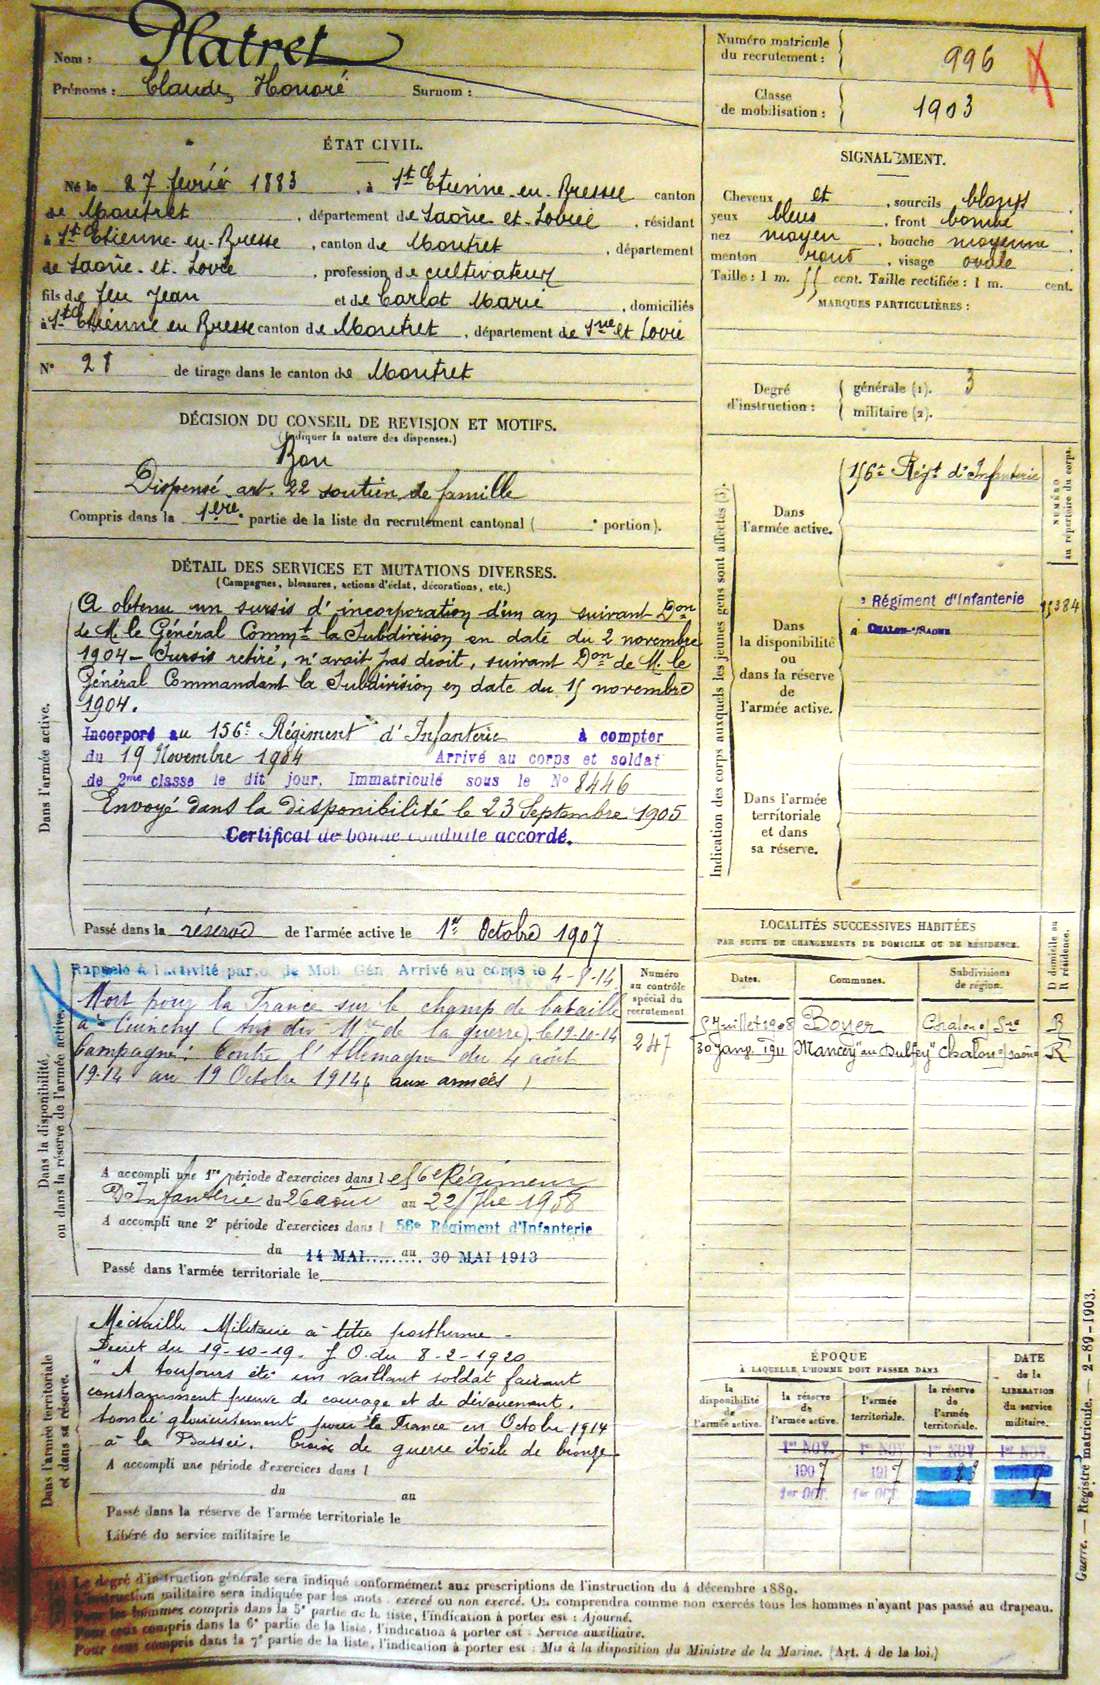 Nom : Platret
Prénoms : Claude, Honoré Surnom :
Numéro matricule du recrutement : 996
Classe de mobilisation : 1903
ÉTAT CIVIL.
Né le 27 fevrié 1883, à St Etienne-en-Bresse canton
de Montret, département de Saône-et-Loire, résidant
à St Etienne-en-Bresse, canton de Montret, département
de Saône-et-Loire, profession de cultivateur
fils de feu Jean et de Carlot Marie, domiciliés
à St Etienne en Bresse canton de Montret, département de Sne et Loire
N° 28 de tirage dans le canton de Montret
DÉCISION DU CONSEIL DE REVISION ET MOTIFS.
(Indiquer la nature des dispenses.)
Bon
Dispensé art. 22 soutien de famille
Compris dans la 1ère partie de la liste du recrutement cantonal ( e portion).
DÉTAIL DES SERVICES ET MUTATIONS DIVERSES.
(Campagnes, blessures, actions d'éclat, décorations, etc.)
Dans l'armée active.
A obtenu un sursis d'incorporation d'un an suivant Don
de M. le Général Commt la Subdivision en date du 2 novembre
1904 – Sursis retiré, n'avait pas droit, suivant Don de M. le
Général Commandant la Subdivision en date du 15 novembre
1904.
Incorporé au 156e Régiment d'Infanterie à compter
du 19 Novembre 1904 Arrivé au corps et soldat
de 2me classe le dit jour. Immatriculé sous le N° 8446
Envoyé dans la disponibilité le 23 Septembre 1905
Certificat de bonne conduite accordé.
Passé dans la réserve de l'armée active le 1er Octobre 1907
Dans la disponibilité, ou dans la réserve de l'armée active.
Rappelé à l'activité par de Mob. Gén. Arrivé au corps le 4-8-14
Mort pour la France sur le champ de bataille
à Cuinchy ( Mre de la guerre) le 19-10-14
Campagne : Contre l'Allemagne du 4 août
1914 au 19 Octobre 1914 ( aux armées )
Numéro au contrôle spécial du recrutement
247
A accompli une 1re période d'exercices dans l e 56e Régiment
D'Infanterie du 26 août au 22 7bre 1908
A accompli une 2e période d'exercices dans l 56e Régiment d'Infanterie
du 14 MAI au 30 MAI 1913
Passé dans l'armée territoriale le
Dans l'armée territoriale et dans sa réserve.
Médaille Militaire à titre posthume -
Décret du 19-10-19. J.O. du 8-2-1920
" A toujours été un vaillant soldat faisant
constamment preuve de courage et de dévouement.
tombé glorieusement pour la France en Octobre 1914
à la Bassée. Croix de guerre étoile de bronze
A accompli une période d'exercices dans l
du au
Passé dans la réserve de l'armée territoriale le
Libéré du service militaire le
SIGNALEMENT.
Cheveux et, sourcils blonds
yeux bleus, front bombé
nez moyen, bouche moyenne
menton rond, visage ovale
Taille : 1 m. 55 cent. Taille rectifiée : 1 m. cent.
MARQUES PARTICULIÈRES :
Degré d'instruction : générale (1). 3
militaire (2).
Indication des corps auxquels les jeunes gens sont affectés (3).
NUMÉRO au répertoire du corps.
Dans l'armée active.
156e Régt d'Infanterie
Dans la disponibilité ou dans la réserve de l'armée active.
Régiment d'Infanterie
à CHALON-s/SAONE
Dans l'armée territoriale et dans sa réserve.
LOCALITÉS SUCCESSIVES HABITÉES
PAR SUITE DE CHANGEMENTS DE DOMICILE OU DE RÉSIDENCE.
Dates. Communes. Subdivisions de région. D domicile ou R résidence.
5 Juillet 1908 Boyer Chalon s/ Sne R
30 Janv. 1911 Mancey "au Dulfey" Chalon s/ Saône R
ÉPOQUE
À LAQUELLE L'HOMME DOIT PASSER DANS
DATE de la LIBÉRATION du service militaire.
la disponibilité de l'armée active. la réserve de l'armée active. l'armée territoriale. la réserve de l'armée territoriale.
1er NOV. 1er NOV. 1er NOV. 1er NOV.
1907 1917
1er OCT. 1er OCT.
Guerre. — Registre matricule. — 2-89-1903.
Le degré d'instruction générale sera indiqué conformément aux prescriptions de l'instruction du 4 décembre 1889.
L'instruction militaire sera indiquée par les mots : exercé ou non exercé. On comprendra comme non exercés tous les hommes n'ayant pas passé au drapeau.
Pour les hommes compris dans la 5e partie de la liste, l'indication à porter est : Ajourné.
Pour ceux compris dans la 6e partie de la liste, l'indication à porter est : Service auxiliaire.
Pour ceux compris dans la 7e partie de la liste, l'indication à porter est : Mis à la disposition du Ministre de la Marine. (Art. 4 de la loi.)